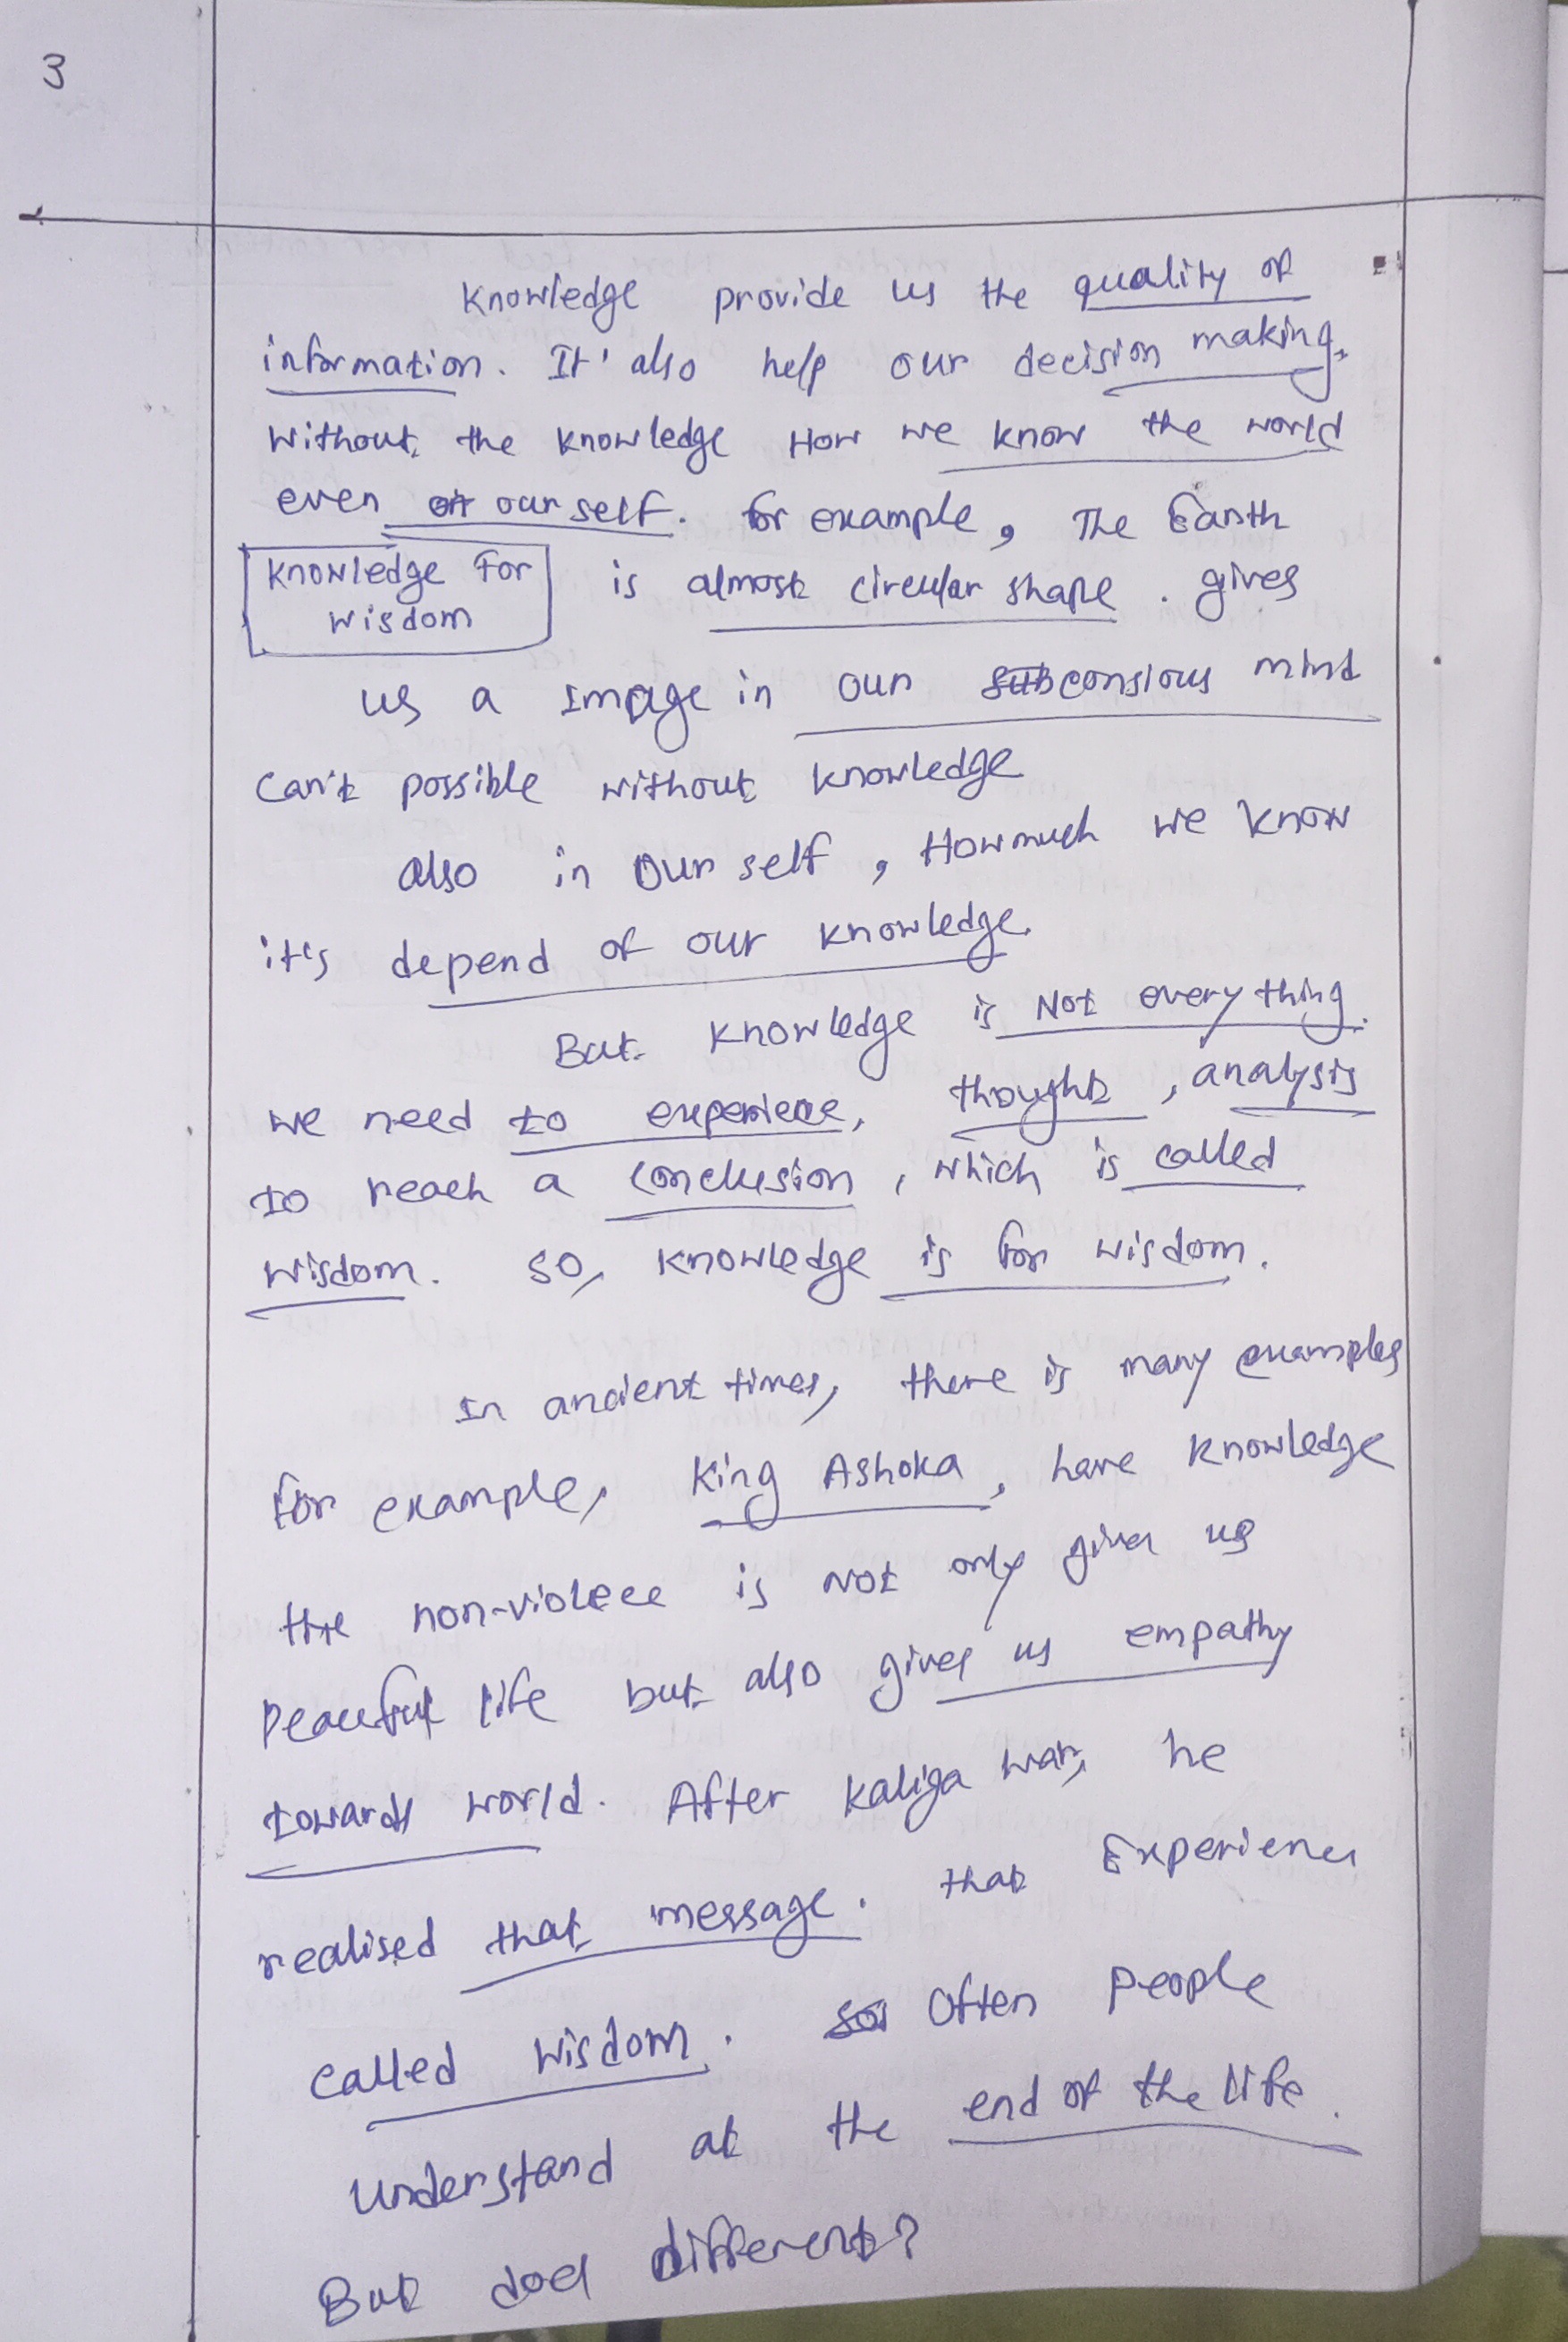 3
Knowledge provide us the quality of
information. It' also help our decision making.
Without the knowledge How we know the world
even our self. for example, The Earth
Knowledge For
wisdom
is almost circular shape. gives
us a image in our subconsious mind
can't possible without knowledge
also in our self, How much we know
it's depend of our knowledge.
But knowledge is Not everything.
we need to experiece, thoughts, analysis
to reach a conclusion, which is called
wisdom. so, knowledge is for wisdom.
In ancient times, there is many examples
for example, King Ashoka, have knowledge
the non-violece is not only gives us
peaceful life but also gives us empathy
towards world. After kaliga war, he
realised that message. that Experience
called wisdom. Often people
understand at the end of the life.
But does different?